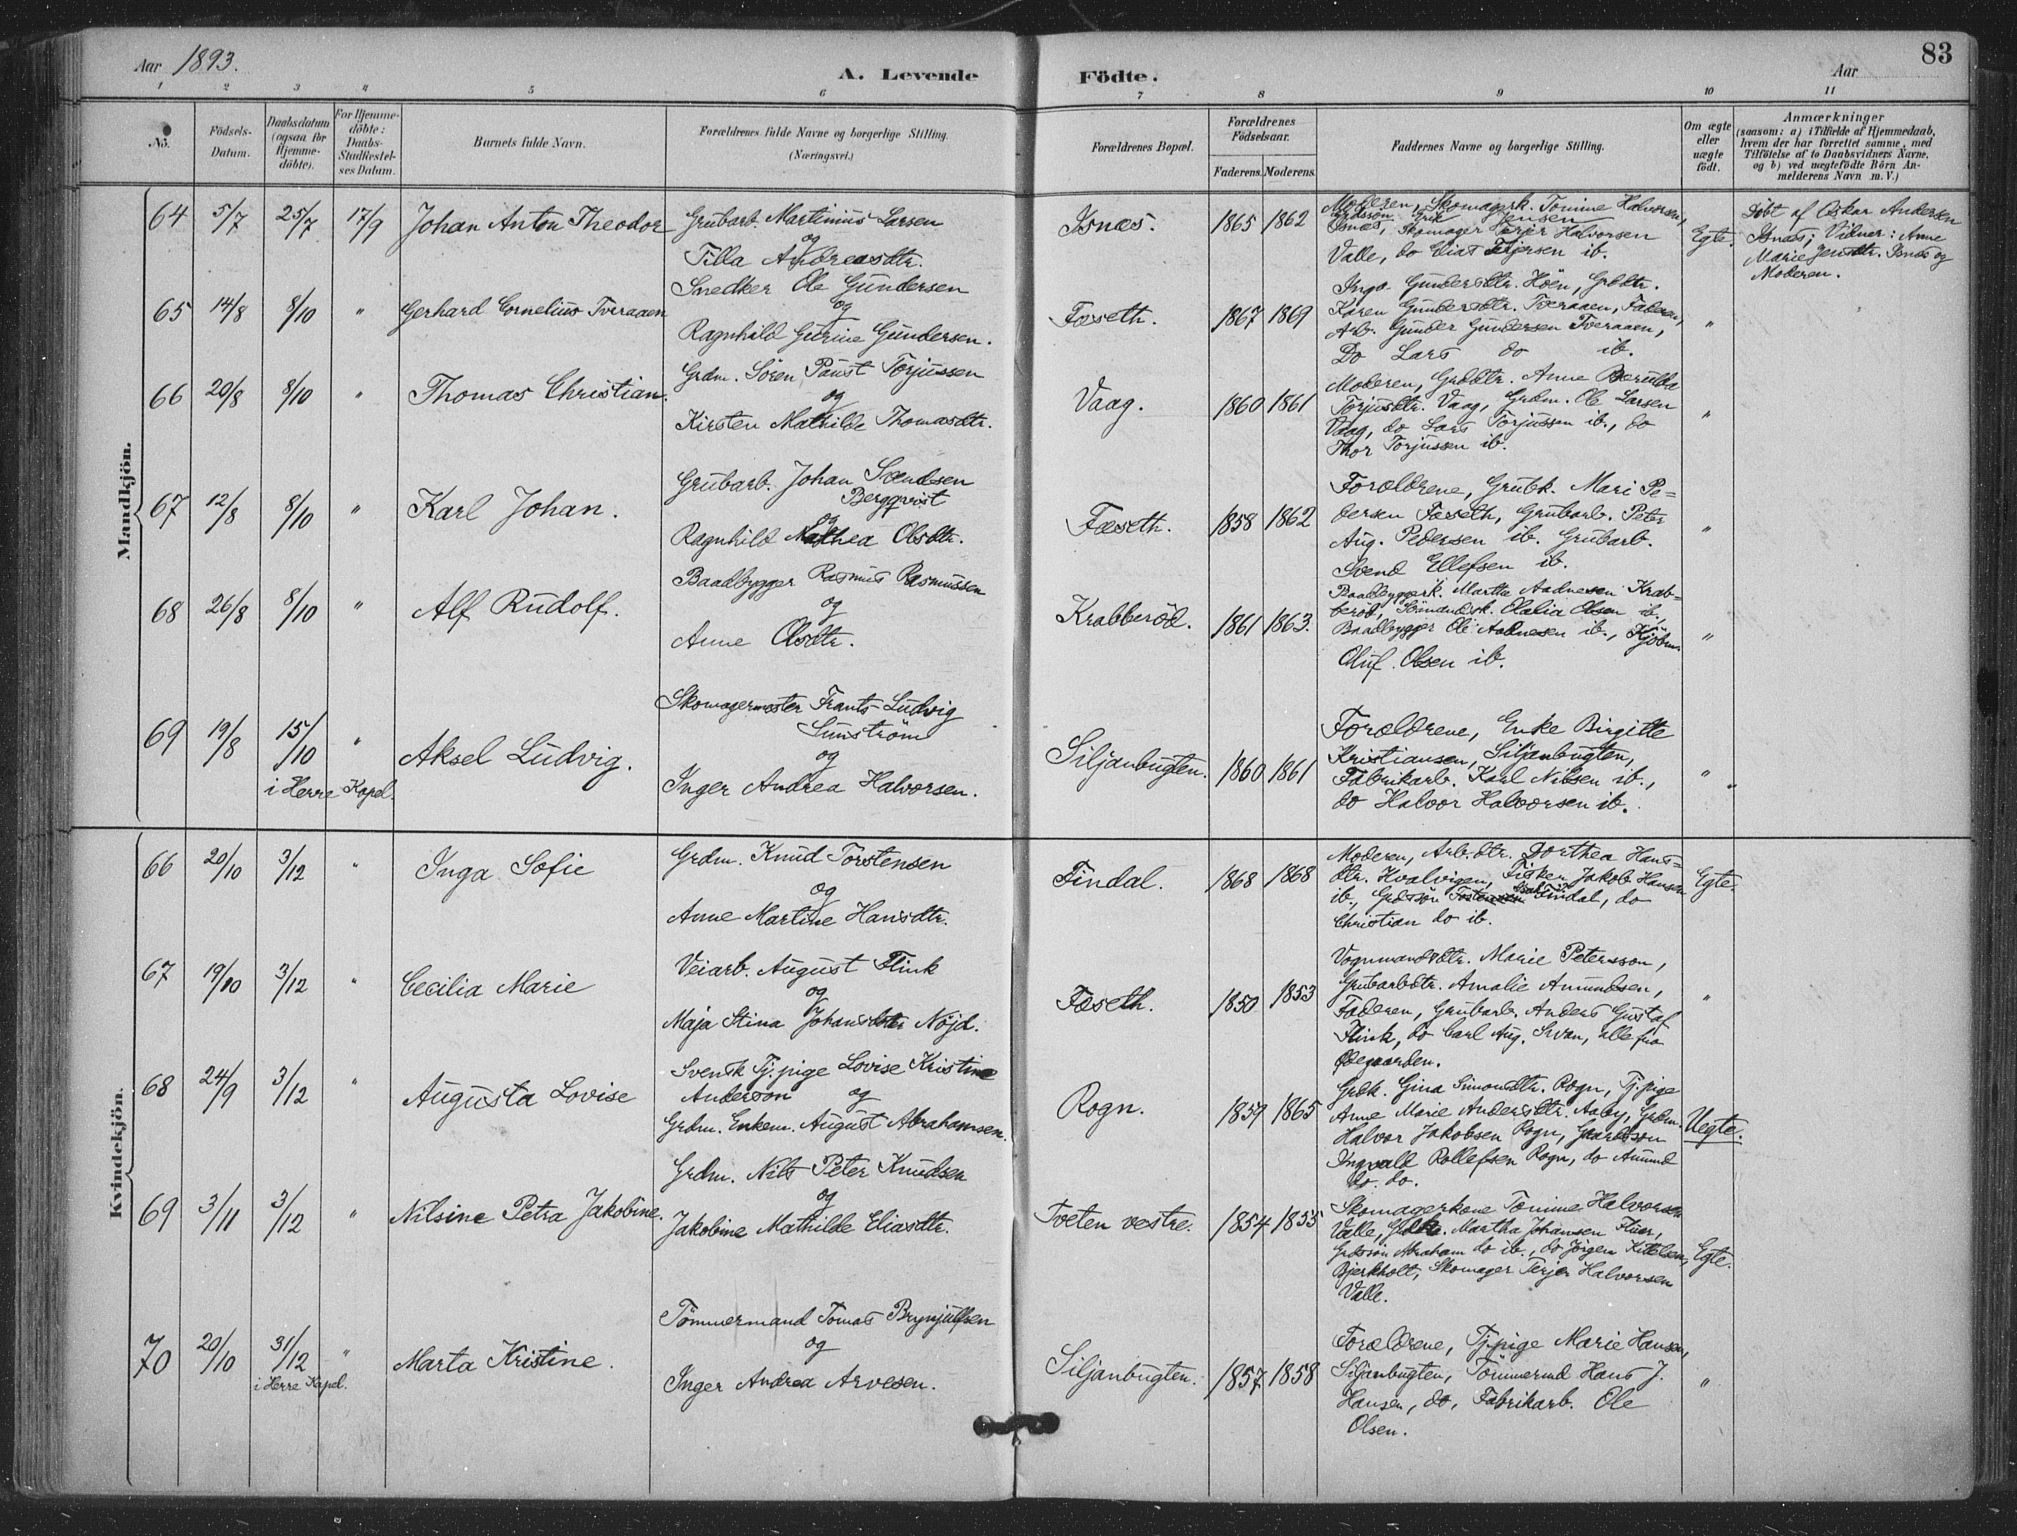 Aar 1893.
A. Levende Födte.
Aar
83
1 2 3 4 5 6 7 8 9 10 11
No.
Födsels-Datum.
Daabsdatum (ogsaa for Hjemme-döbte).
For Hjemme-döbte: Daabs-Stadfæstel-ses Datum.
Barnets fulde Navn.
Forældrenes fulde Navne og borgerlige Stilling. (Næringsvei.)
Forældrenes Bopæl.
Forældrenes Födselsaar.
Faderens. Moderens.
Faddernes Navne og borgerlige Stilling.
Om ægte eller uægte födt.
Anmærkninger
(saasom: a) i Tilfælde af Hjemmedaab, hvem der har forrettet samme, med Tilföielse af to Daabsvidners Navne, og b) ved uægtefödte Börn An-melderens Navn m. V.)
Mandkjön.
64 5/7 25/7 17/9 Johan Anton Theodor
Grubarb. Martinius Larsen
og
Tilla Andreasdtr.
Isnæs. 1865 1862
Moderen, Skomagerk. Tomine Halvorsen,
Isnæs, Skomager Terjer Halvorsen
Valle, do Elias Terjersen ib.
Egte.
Döbt af Oskar Andersen
Isnæs; Vidner: Anne
Marie Jensdtr. Isnæs og
Moderen.
65 14/8 8/10 " Gerhard Cornelius Tveraaen
Snedker Ole Gundersen
og
Ragnhild Gurine Gundersen.
Fæseth. 1867 1869
Inga Gundersdtr. Höen, Grdtr.
Karen Gundersdtr. Tveraaen, Faderen,
Arb. Gunder Gundersen Tveraaen,
Do Lars do ib.
"
66 20/8 8/10 " Thomas Christian.
Grdm. Sören Paust Torjussen
og
Kirsten Mathilde Thomasdtr.
Vaag. 1860 1861
Moderen, Grddtr. Anne
Torjusdtr. Vaag, Grdm. Ole Larsen
Vaag, do Lars Torjussen ib., do
Thor Torjussen ib.
"
67 12/8 8/10 " Karl Johan.
Grubarb. Johan Svendsen
Bergqvist
og
Ragnhild Mathea Olsdtr.
Fæseth. 1858 1862
Forældrene, Grubk. Mari Pe=
dersen Fæseth, Grubarb. Peter
Aug. Pedersen ib. Grubarb.
Svend Ellefsen ib.
"
68 26/8 8/10 " Alf Rudolf.
Baadbygger Rasmus Rasmussen
og
Anne Olsdtr.
Krabberöd. 1861 1863.
Baadbyggerk. Martha Aadnesen Krab=
beröd, Sömandsk. Olalia Olsen ib,
Baadbygger Ole Aadnesen ib., Kjöbm.
Oluf Olsen ib.
"
69 19/8 15/10 " Aksel Ludvig.
i Herre Kapel.
Skomagermester Frants Ludvig
Sunström
og
Inger Andrea Halvorsen.
Siljanbugten. 1860 1861
Forældrene, Enke Birgitte
Kristiansen, Siljanbugten,
Fabrikarb. Karl Nilsen ib.,
do Halvor Halvorsen ib.
" "
Kvindekjön.
66 20/10 3/12 " Inga Sofie
Grdm. Knud Torstensen
og
Anne Martine Hansdtr.
Findal. 1868 1868
Moderen, Arb.dtr. Dorthea Hans=
dtr. Kvalvigen, Fisker Jakob Hansen
ib., Grdssön Findal, do
Christian do ib.
Egte.
67 19/10 3/12 " Cecilia Marie
Veiarb. August Flink
og
Maja Stina Johansdtr Nöjd.
Fæseth. 1850 1853
Vognmandsdtr. Marie Petersson,
Grubarbdtr. Amalie Amundsen,
Faderen, Grubarb. Anders Gustaf
Flink, do Carl Aug. Svan, alle fra
Ödegaarden.
"
68 24/9 3/12 " Augusta Lovise
Svensk Tj.pige Lovise Kristine
Anderson og
Grdm. Enkem. August Abrahamsen.
Rogn. 1859 1865
Grdk. Gina Simonsdtr. Rogn, Tj.pige
Anne Marie Andersdtr. Aaby, Grdm.
Halvor Jakobsen Rogn, Gaardssön
Ingvald Rollefsen Rogn, do Amund
do. do.
Uegte.
69 3/11 3/12 " Nilsine Petra Jakobine.
Grdm. Nils Peter Knudsen
og
Jakobine Mathilde Eliasdtr.
Tveten vestre. 1854 1855
Skomagerkone Tomine Halvorsen
Valle, Grdk. Martha Johansen Fluer,
Grdssön Abraham do ib., do Jörgen Kittelsen,
Bjerkholt, Skomager Terjer Halvorsen
Valle.
Egte.
70 20/10 31/12 " Marta Kristine.
i Herre Kapel.
Tömmermand Tomas Brynjulfsen
og
Inger Andrea Arvesen.
Siljanbugten. 1857 1858
Forældrene, Tj.pige Marie Hansen,
Siljanbugten, Tömmermd Hans J.
Hansen, do, Fabrikarb. Ole
Olsen.
"